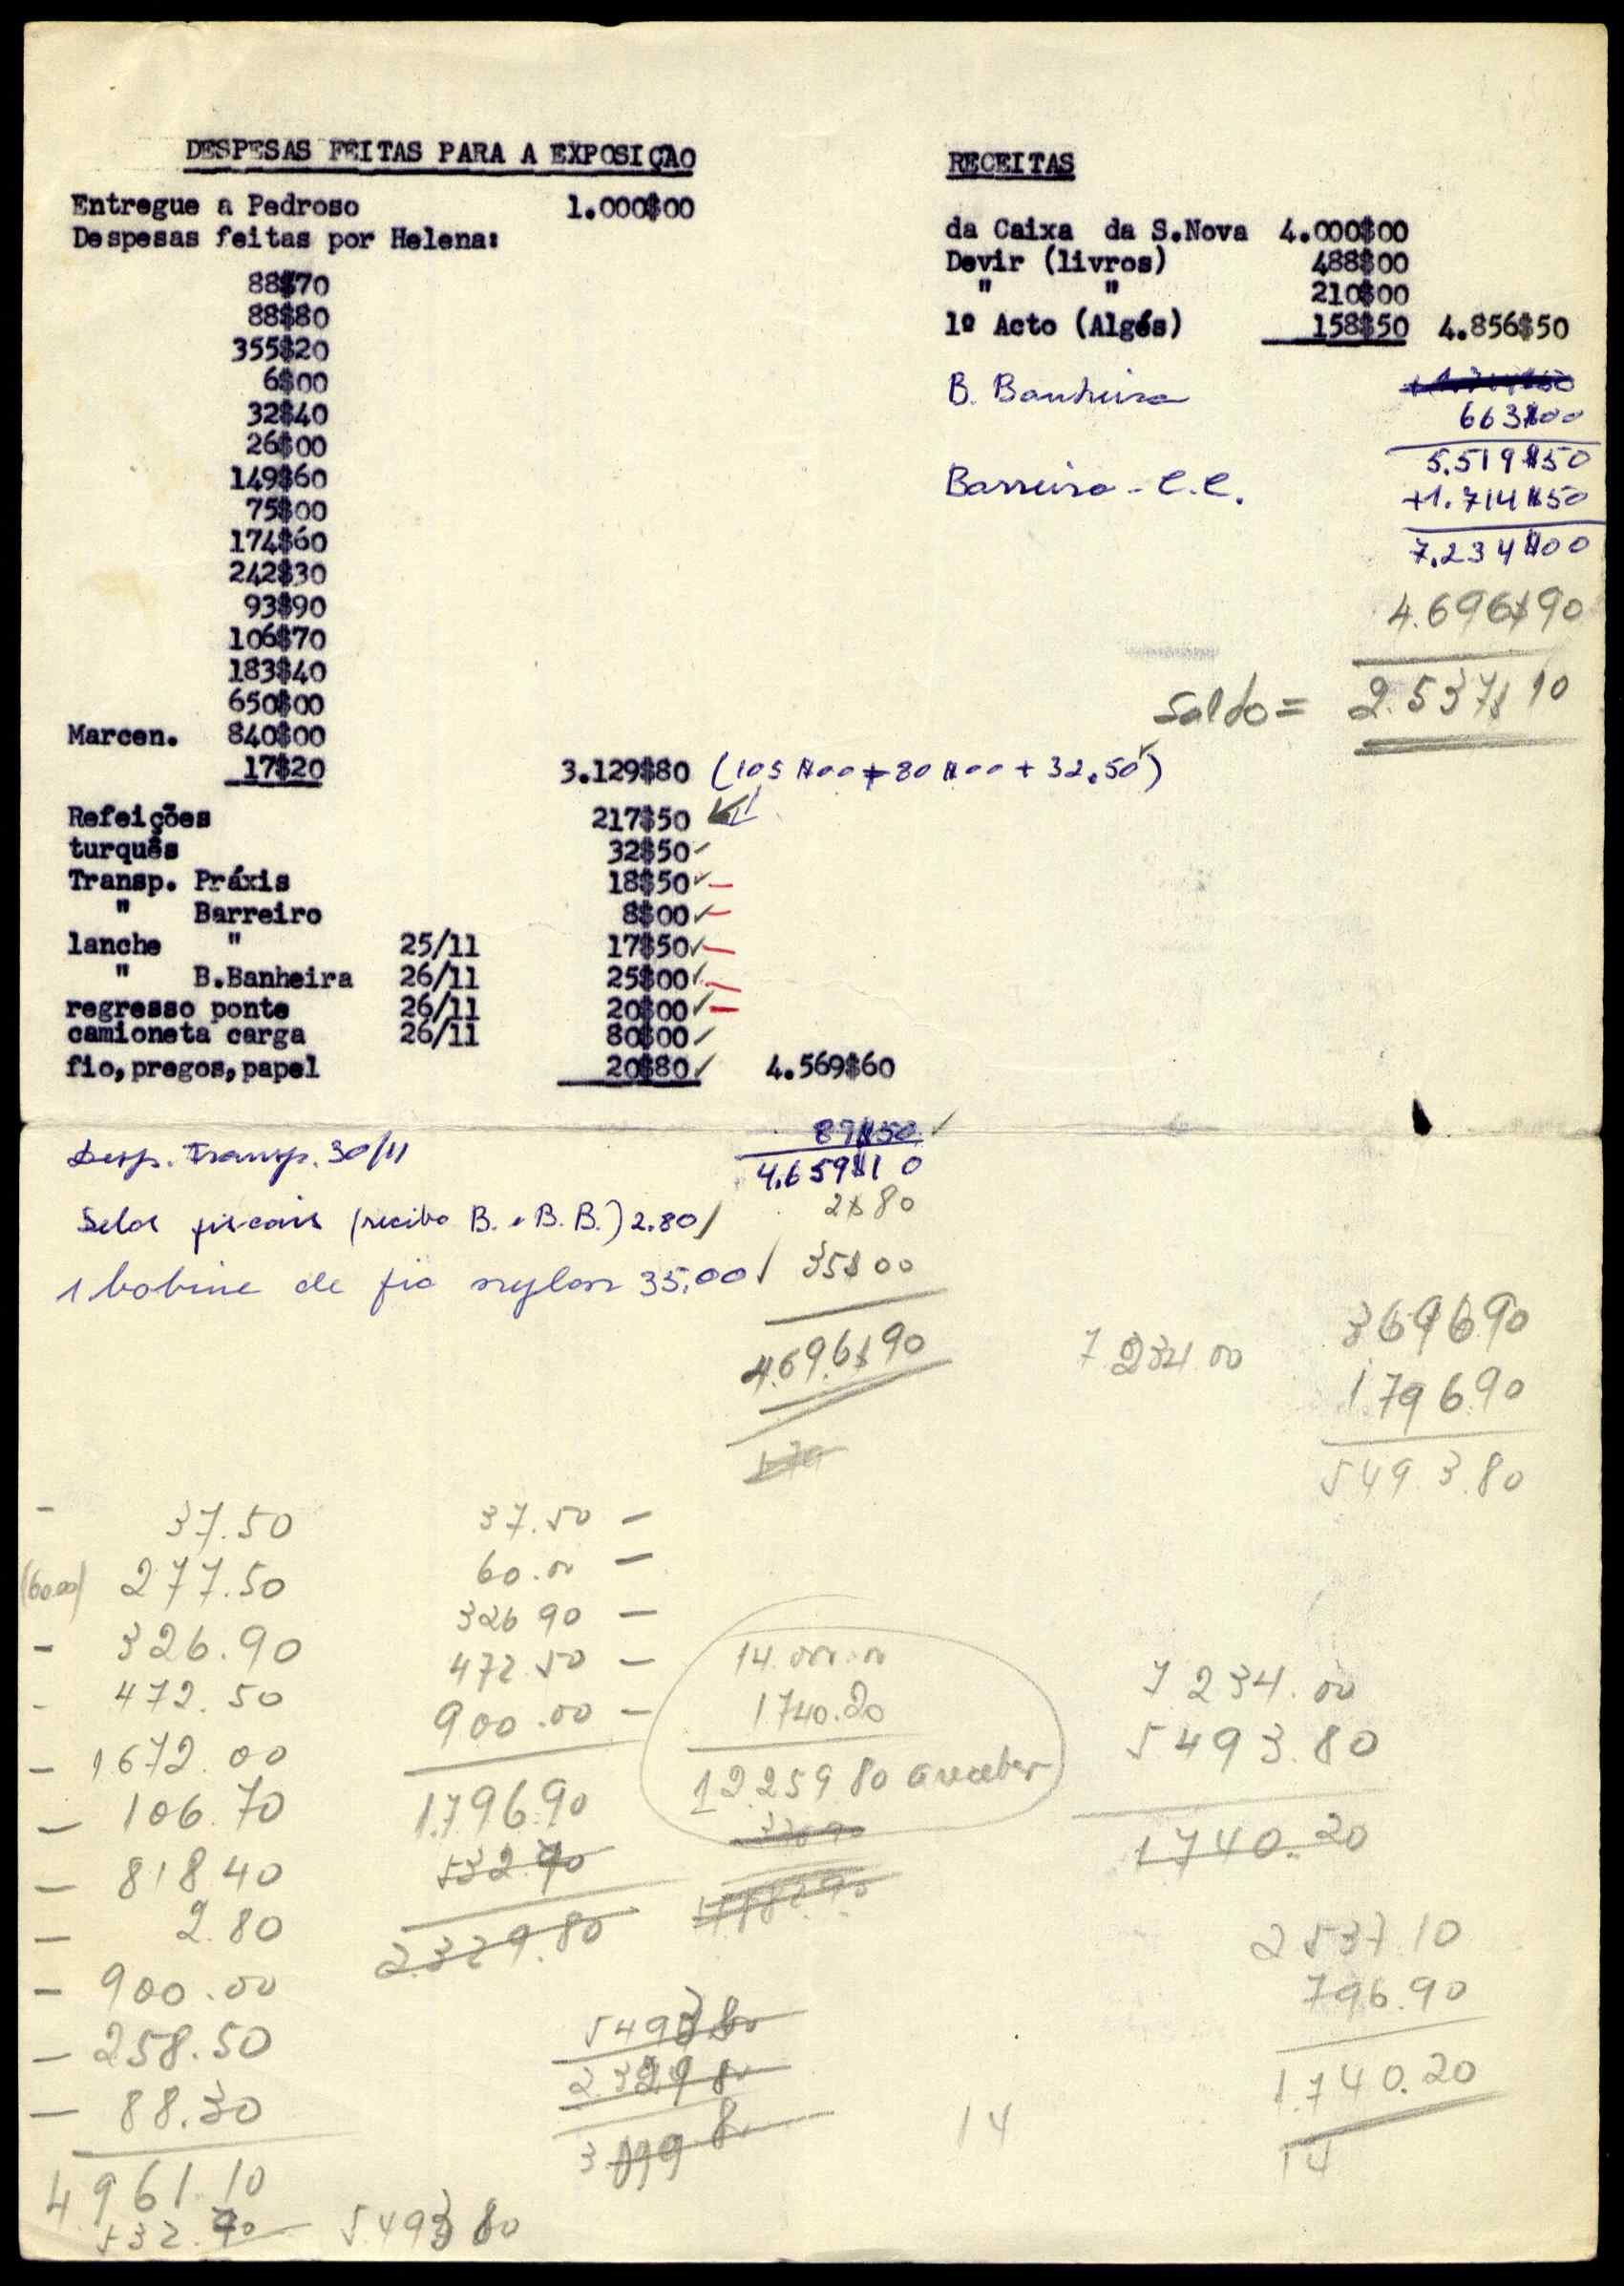 DESPESAS FEITAS PARA A EXPOSIÇÃO
Entregue a Pedroso 1.000$00
Despesas feitas por Helena:
88$70
88$80
355$20
6$00
32$40
26$00
149$60
75$00
174$60
242$30
93$90
106$70
183$40
650$00
Marcen. 840$00
17$20 3.129$80 (105$00+80$00+32.50)
Refeições 217$50
turquês 32$50
Transp. Práxis 18$50
" Barreiro 8$00
lanche " 25/11 17$50
" B.Banheira 26/11 25$00
regresso ponte 26/11 20$00
camioneta carga 26/11 80$00
fio,pregos,papel 20$80 4.569$60
Desp. Transp. 30/11 89$50
4.659$10
Selos fiscais (recibo B. e B. B.) 2.80 2$80
1 bobine de fio nylon 35.00 35$00
4.696$90
RECEITAS
da Caixa da S.Nova 4.000$00
Devir (livros) 488$00
" " 210$00
1º Acto (Algés) 158$50 4.856$50
B. Banheira 663$00
5.519$50
Barreiro - C.C. +1.714$50
7.234$00
4.696$90
Saldo = 2.537$10
7 234.00
3696.90
1796.90
5493.80
37.50
(60.00) 277.50
326.90
472.50
1672.00
106.70
818.40
2.80
900.00
258.50
88.30
4961.10
532.70
5493 80
37.50
60.00
326 90
472.50
900.00
1.796.90
532.70
2.329.80
14.000.00
1740.20
12.259 80 a receber
5493 80
2329 80
7 234.00
5493.80
1740.20
2537.10
796.90
1.740.20
14
14